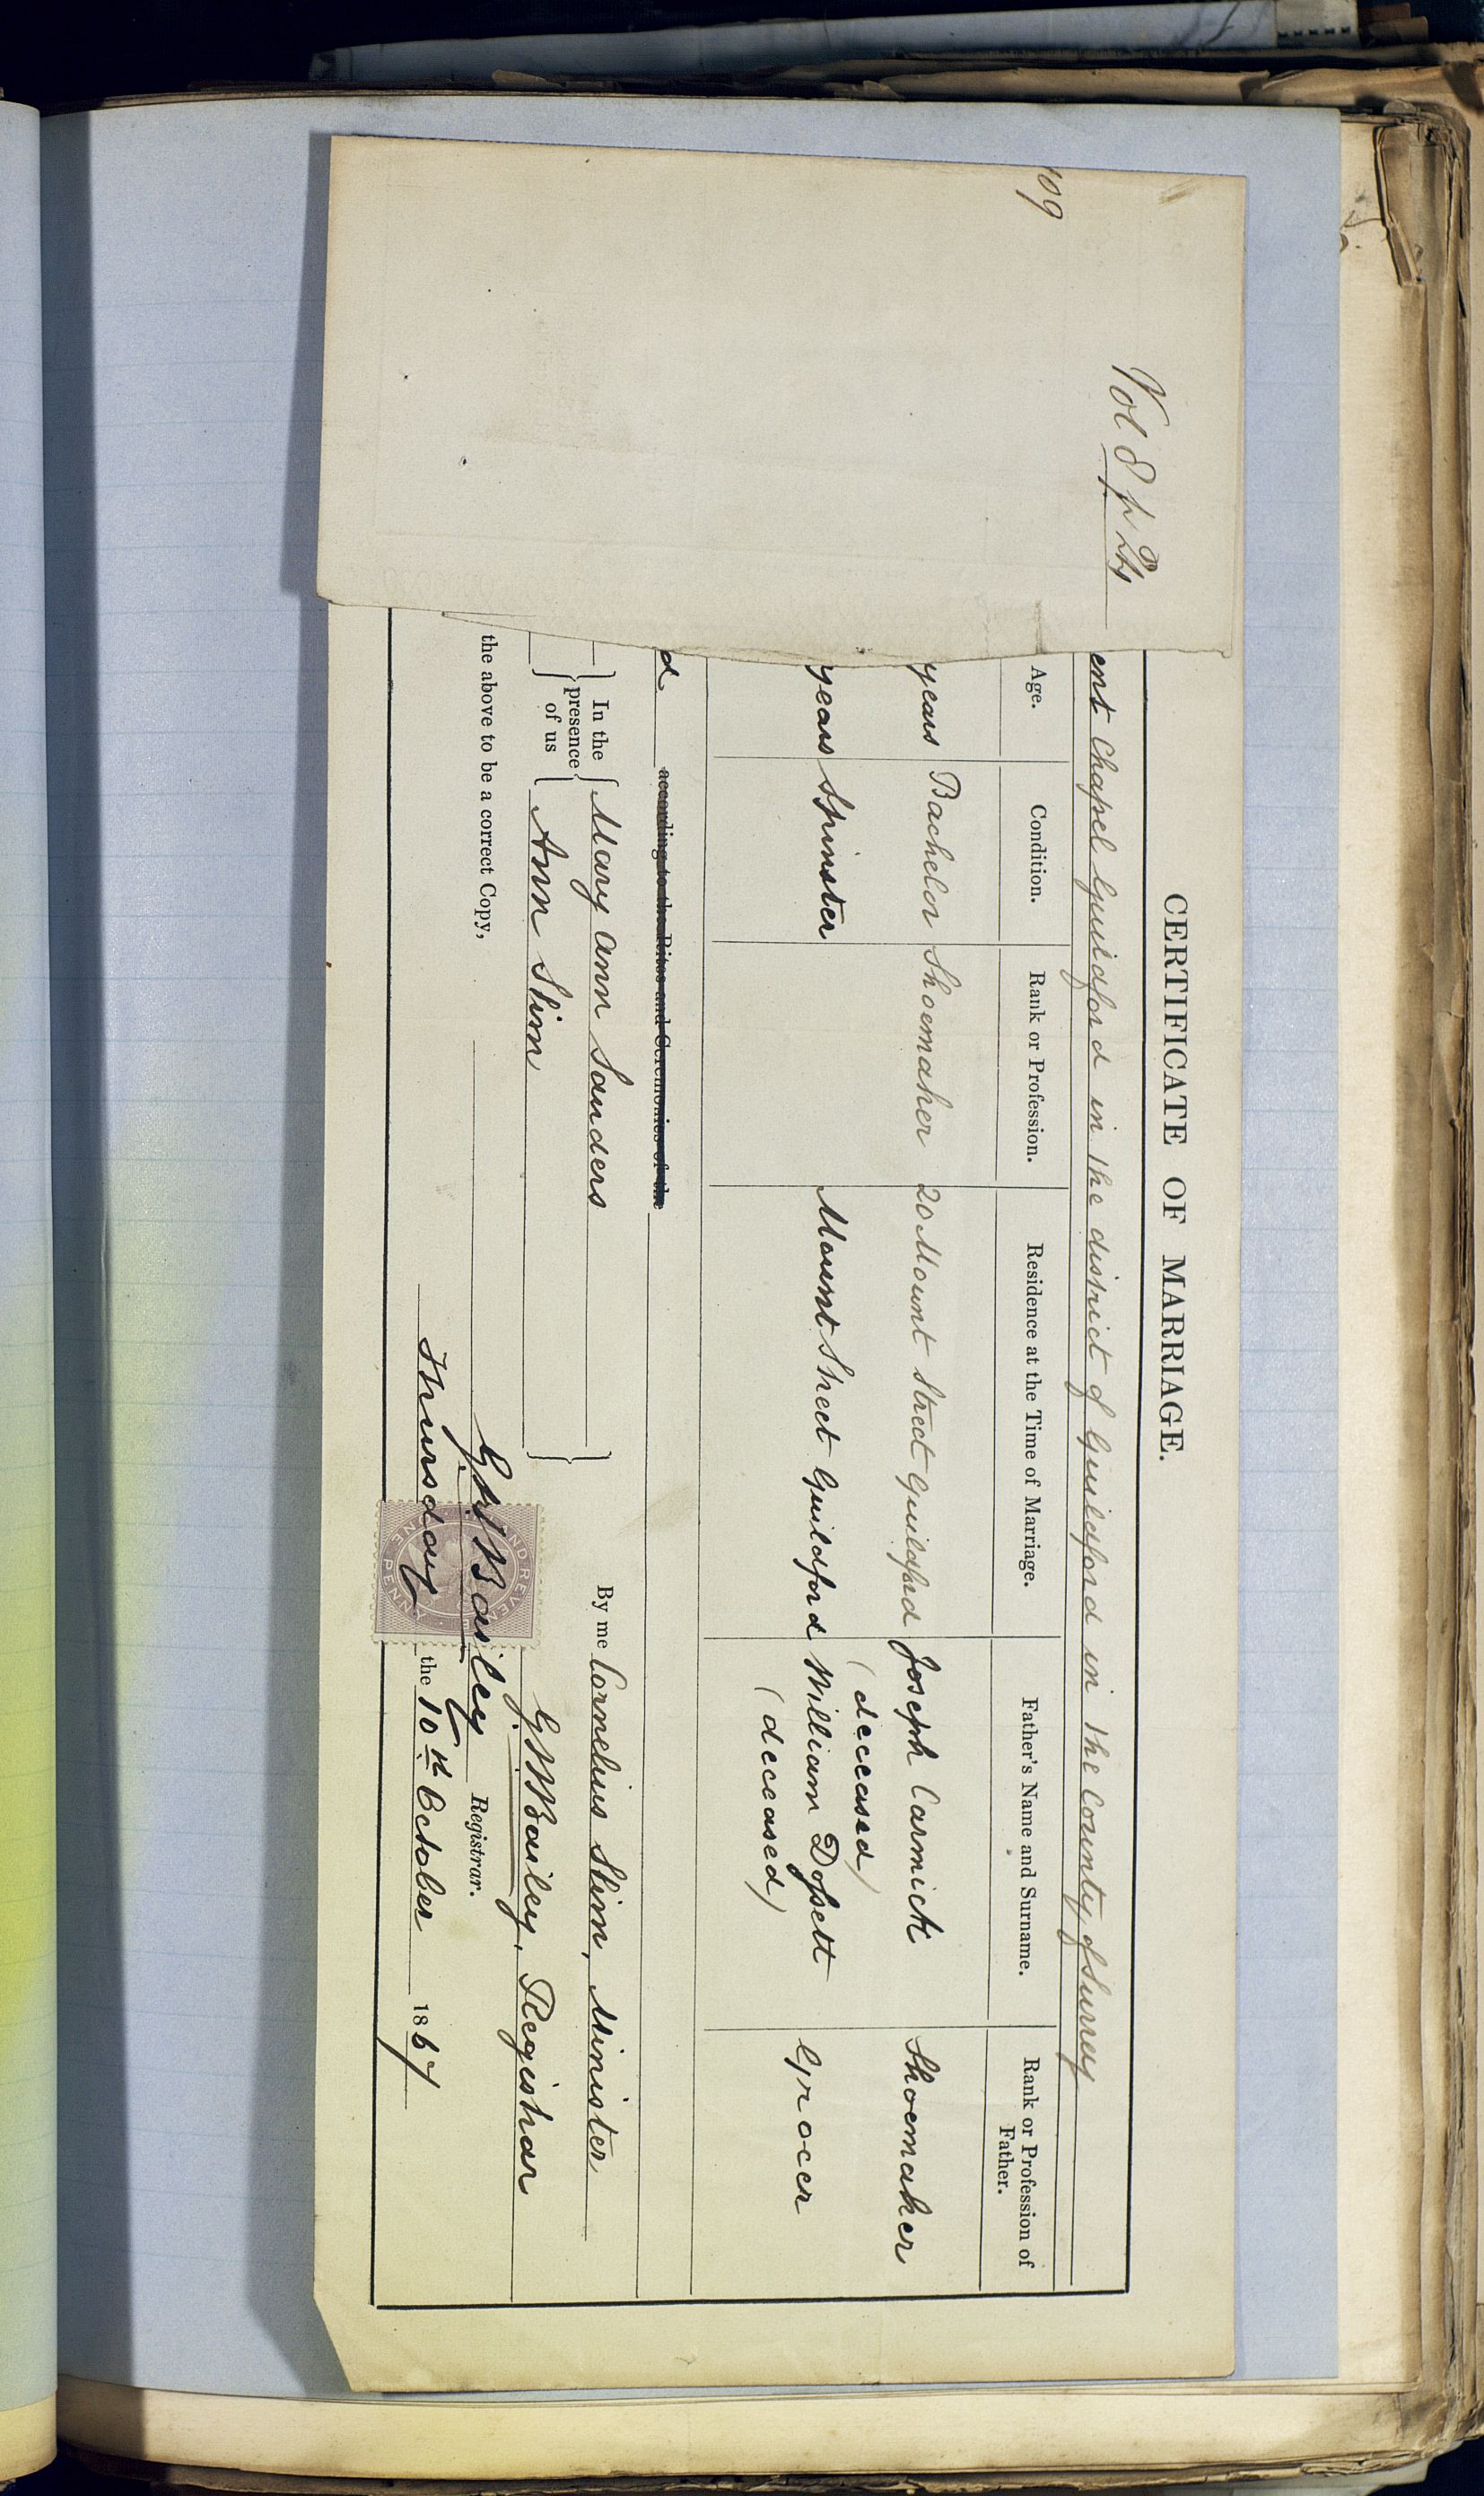 109
Vol 8 p 24
CERTIFICATE OF MARRIAGE.
ent Chapel Guildford in the district of Guildford in the County of Surrey
Age. Condition. Rank or Profession. Residence at the Time of Marriage. Father's Name and Surname. Rank or Profession of Father.
years Bachelor Shoemaker 20 Mount Street Guildford Joseph Carmick Shoemaker
(deceased)
years Spinster Mount Street Guildford William Dossett Grocer
(deceased)
d according to the Rites and Ceremonies of the
In the presence of us Mary Ann Sanders By me Cornelius Slim, Minister
Ann Slim G W Bailey, Registrar
the above to be a correct Copy, G W Bailey Registrar.
Thursday the 10th October 1867
INLAND REVENUE
ONE PENNY